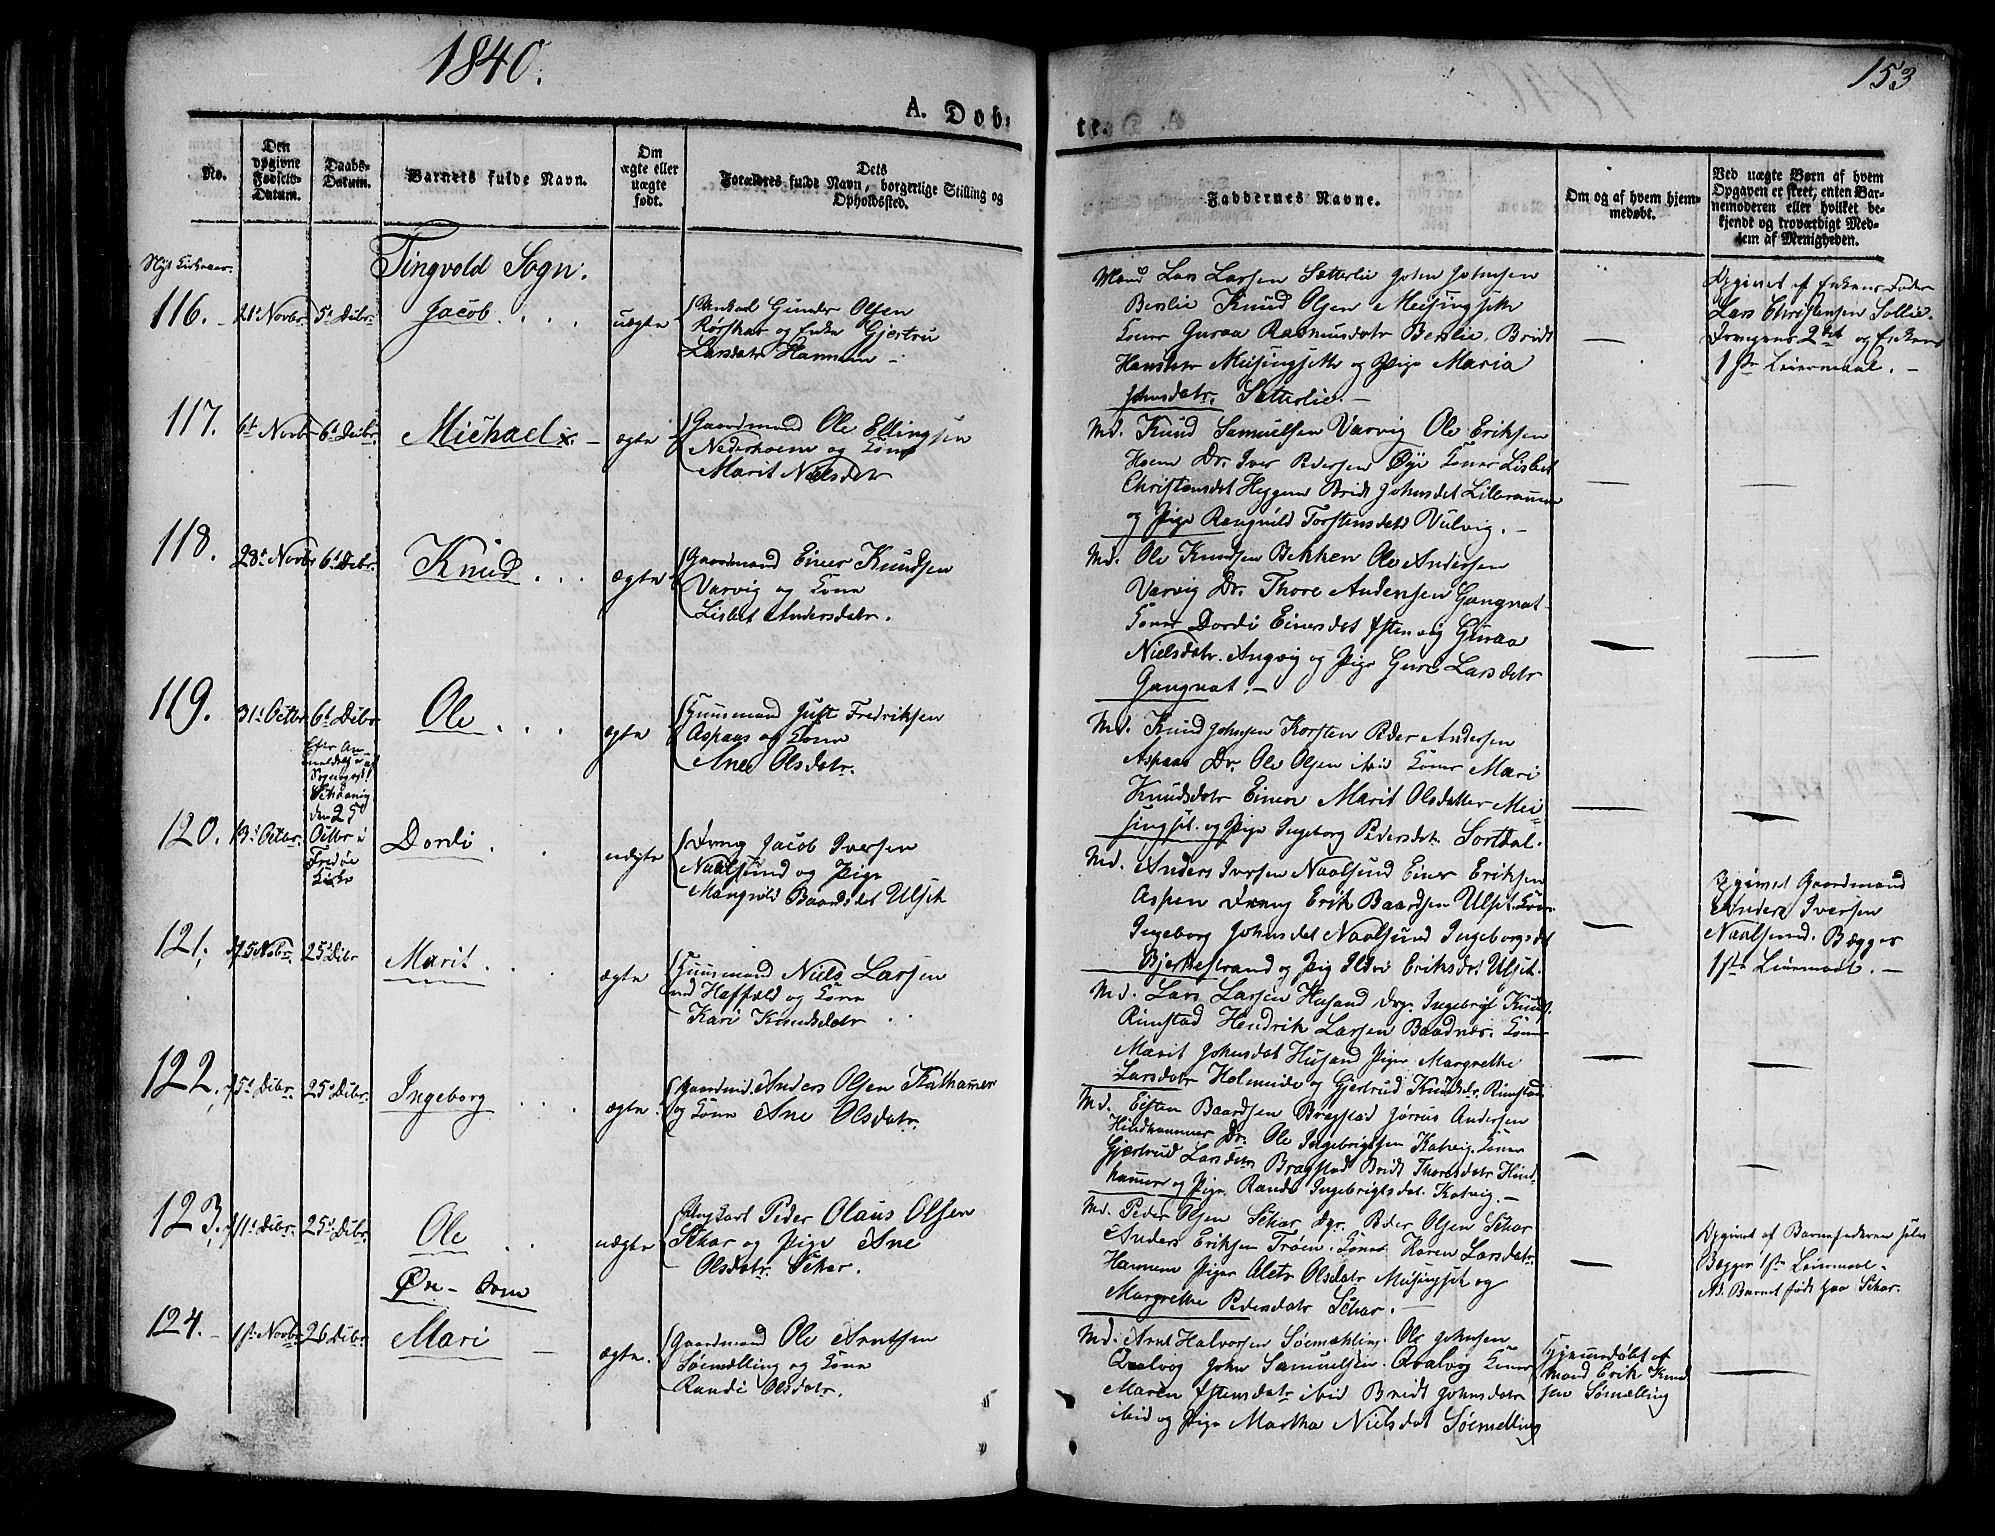 1840.
153
A. Døb-
te.
No.
Den opgivne Fødsels-Datum.
Daabs-Datum.
Barnets fulde Navn.
Om ægte eller uægte født.
Dets Forældres fulde Navn, borgerlige Stilling og Opholdssted.
Faddernes Navne.
Om og af hvem hjemmedøbt.
Ved uægte Børn af hvem Opgaven er skeet, enten Barnemoderen eller hvilket bekjendt og troværdigt Medlem af Menigheden.
Nyt Kirkeaar.
Tingvold Sogn.
116.
21d Novbr
5d Dcbr
Jacob
uægte
Gunder Olsen
Rørskar og Enke Gjertru
Larsdatr Hannem
Mænd Lars Larsen Sætterlie John Johnsen
Berslie Knud Olsen Meisingseth
Koner Guraa Rasmusdatr Berslie. Bridt
Hansdatr Meisingseth og Pige Maria
Johnsdatr. Sætterlie.
Opgivet af Enkens Fader
Lars Christensen Sollie.
Drengens 2det og Enkens
1ste Leiermaal.
117.
6d Novbr
6d Decbr
Michael
ægte
Gaardmand Ole Ellingsen
Nederhoem og Kone
Marit Nielsdatr
Md. Knud Samuelsen Varvig Ole Eriksen
Hoem Dr. Iver Pedersen Øye Koner Lisbet
Christensdat Heggem Bridt Johnsdat Lilleraunen
og Pige Rangnild Torstensdatr Vulvig.
118.
28d Novbr
6d Dcbr.
Knud
ægte
Gaardmand Einer Knudsen
Varvig og Kone
Lisbet Andersdatr.
Md. Ole Knudsen Bekken Ole Andersen
Varvig Dr. Thore Andersen Gangnat
Koner Dordi Einersdat Guraa
Nielsdatr. Angvig og Pige Guri Larsdatr
Gangnat.
119.
31d Octbr
6d Dcbr
Ole
ægte
Huusmand Just Fredriksen
Aspaas og Kone
Ane Olsdatr.
Md. Knud Johnsen Korsten Peder Andersen
Aspaas Dr. Ole Olsen ibid Koner Mari
Knudsdatr Marit Olsdatter Mei-
singset. og Pige Ingeborg Pedersdatr. Sortdal.
120.
13d Octbr.
Efter An-
Sogne
den 25d
Octbr i
Fredøe
Kirke
Dordi
uægte
Dreng Jacob Iversen
Naalsund og Pige
Mangnild Baardsdat Ulset
Md. Anders Iversen Naalsund Einer Eriksen
Aspen Dreng Erik Baardsen Ulset. Koner
Ingeborg Johnsdat Naalsund Ingeborg
Bjerkestrand og Pig Ildri Eriksdat Ulset.
Opgivet Gaardmand
Anders Iversen
Naalsund. Bægges
1ste Leiermaal.
121.
25d Dcbr
Marit
ægte
Huusmand Niels Larsen
og Kone
Kari Knudsdatr
Md. Lars Larsen Husand
Rimstad Hendrik Larsen Baadnæs. Koner
Marit Johnsdat Husand Piger Margrethe
Larsdatr Holmeide og Gjertrud Knudsdr. Rimstad
122.
5d Dcbr.
25d Dcbr.
Ingeborg
ægte
Gaardmd. Anders Olsen
og Kone Ane Olsdatr.
Md. Eisten Baardsen Bragstad Andersen
Hindhammer Dr. Ole Ingebrigtsen Kalvig. Koner
Gjertrud Larsdatr Bragstad Bridt Thoresdatr Hind-
hamer og Pige Randi Ingebrigtsdat. Kalvig.
123.
11d Dcbr.
25d Dcbr
Ole
uægte
Ungkarl Peder Olaus Olsen
Schar og Pige Ane
Olsdatr. Schar.
Md. Peder Olsen Schar Peder Olsen Schar
Anders Eriksen Trøen. Koner Karen Larsdatr.
Hannem Piger Olsdatr Meisingset og
Margrethe Pedersdatr Schar.
Opgivet af Barnefaderen
Begges 1ste Leiermaal
NB. Barnet født paa Schar.
Øre-Sogn
124.
1ste Novbr
26 Dcbr
Mari
ægte.
Gaardmand Ole Arntsen
Søemælling og Kone
Randi Olsdatr.
Md. Arnt Halvorsen Søemæhling. Ole Johnsen
Qvalvog John Samuelsen. Qvalvog Koner
Maren ibid Bridt Johnsdatr
ibid og Pige Martha Nielsdat Søemelling
Hjemmedøbt af
Mand Erik Knud-
sen Søemælling